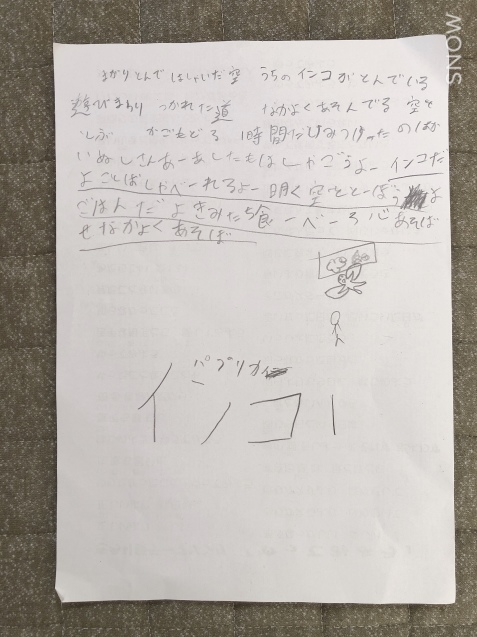 まがりとんで はしゃいだ空 うちのインコがとんでいる
遊びまわり つかれた道 なかよくあそんでる 空を
かごもどろ 1時間だ
いぬしさんあーあしたもはしゃごうよー インコだ
よことばしゃべーれるよー 明く 空をとーぼう よ
ごはんだよきみたち食ーべーろ 心あそば
せなかよくあそぼ
パプリカ
インコー
SNOW